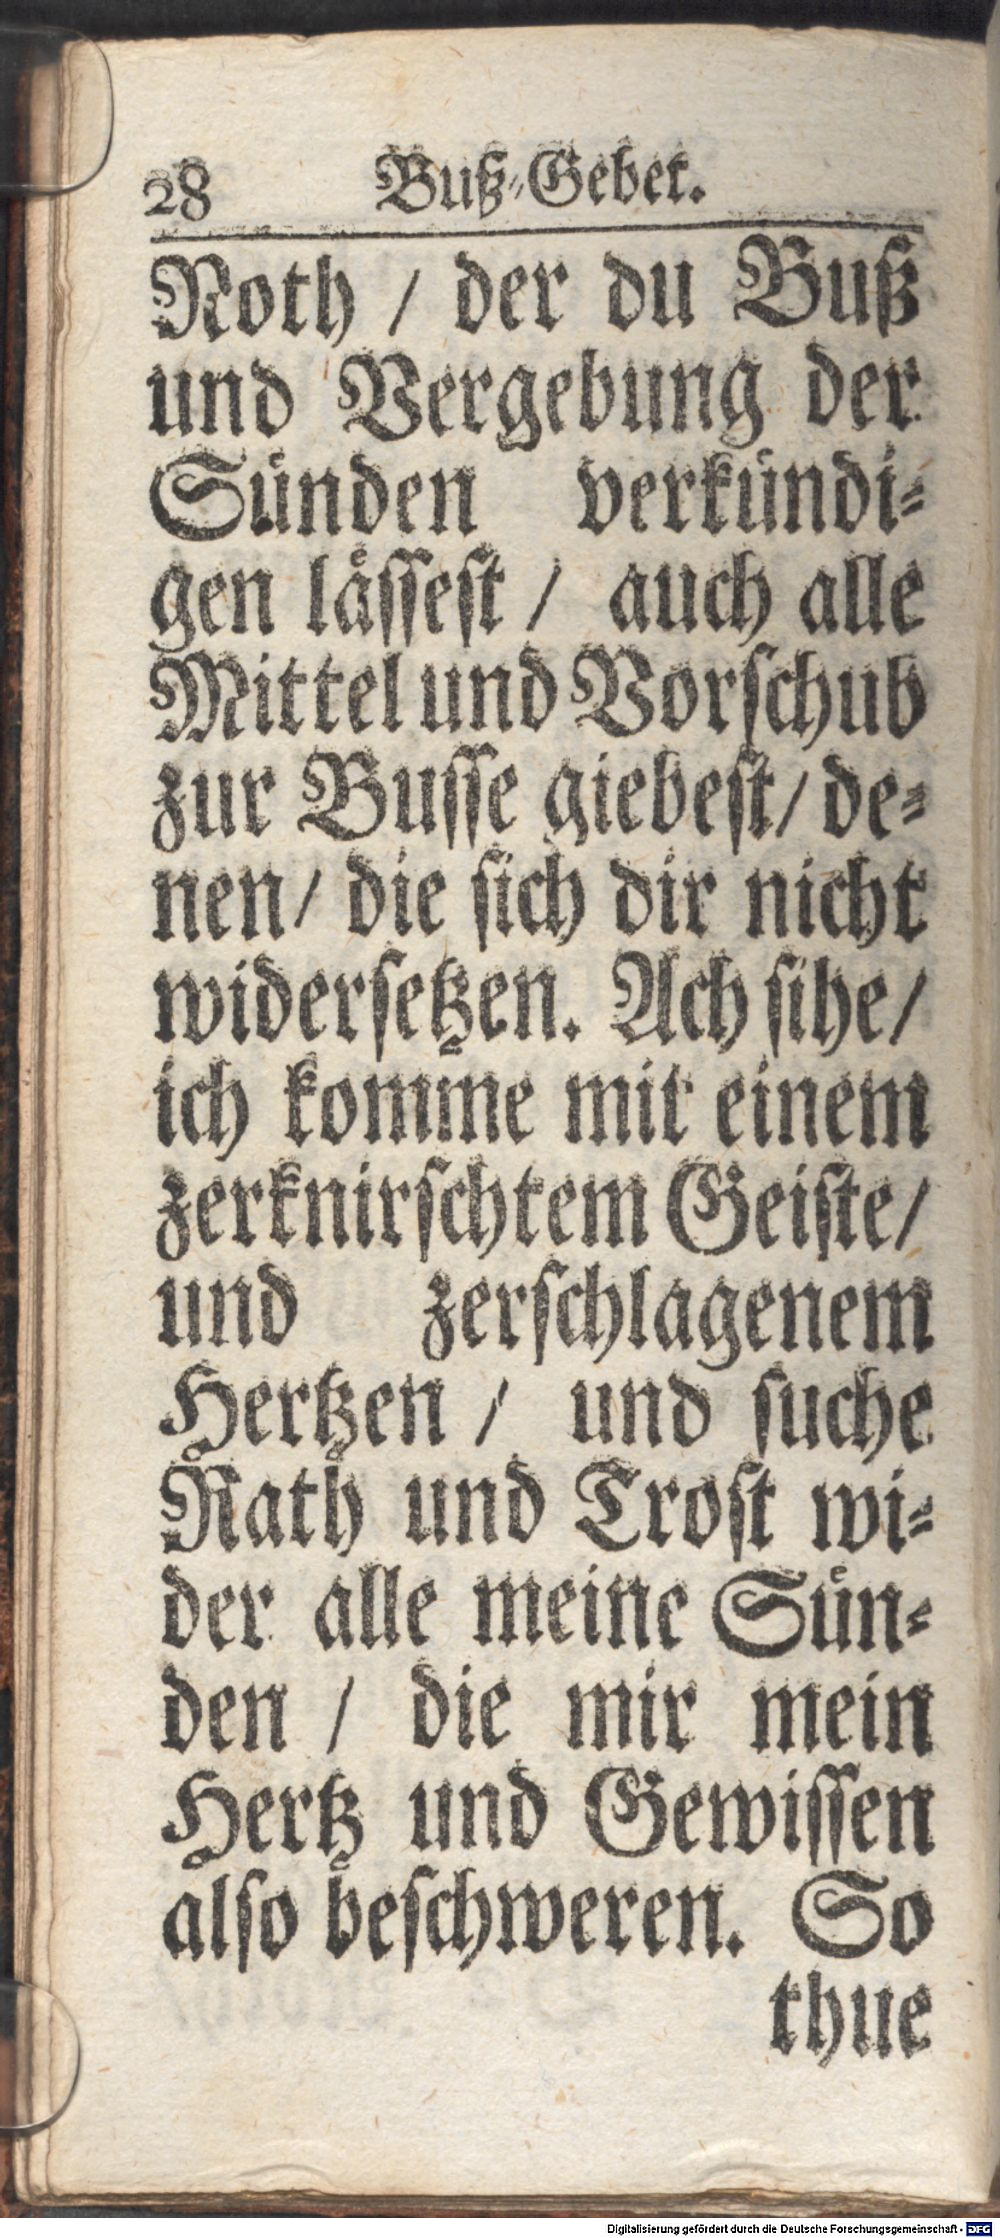 28 Buß-Gebet.
Noth / der du Buß
und Vergebung der
Sünden verkündi-
gen lässest / auch alle
Mittel und Vorschub
zur Busse giebest / de-
nen / die sich dir nicht
widersetzen. Ach sihe /
ich komme mit einem
zerknirschtem Geiste /
und zerschlagenem
Hertzen / und suche
Rath und Trost wi-
der alle meine Sün-
den / die mir mein
Hertz und Gewissen
also beschweren. So
thue
Digitalisierung gefördert durch die Deutsche Forschungsgemeinschaft - DFG